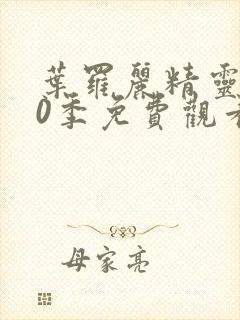 葉羅麗精靈
0季免費觀看
母家亮